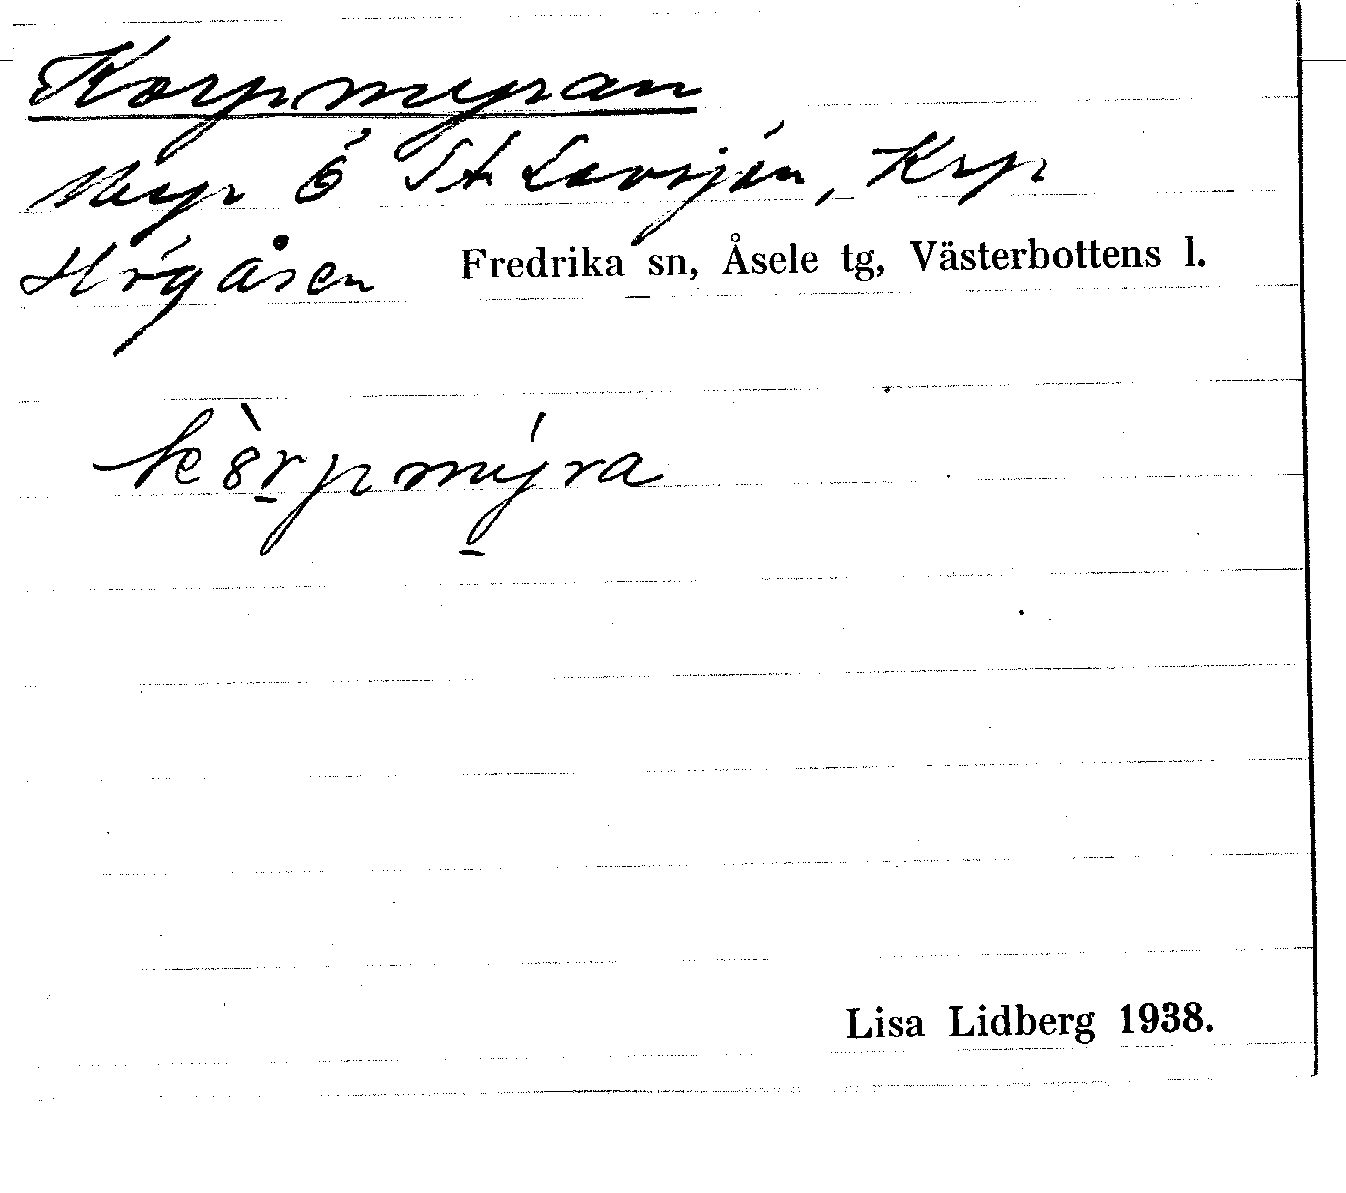 Korpmyran
Myr Ö St Lavsjön, Krp
Högåsen Fredrika sn, Åsele tg, Västerbottens l.
k8̀r̠pmý̠ra
Lisa Lidberg 1938.